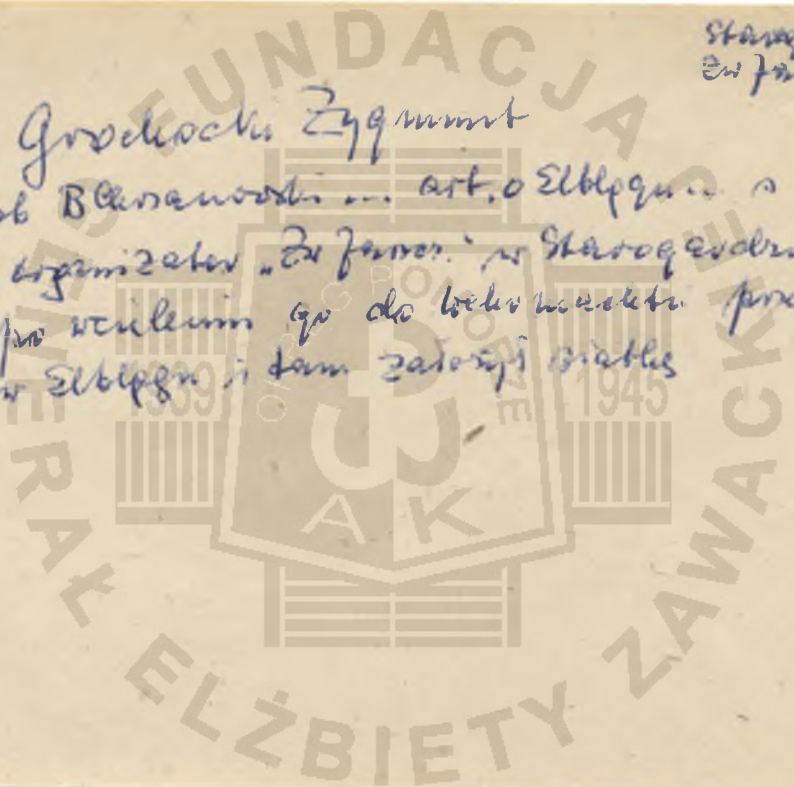 Starog
Zw Ja
Grochocki Zygmunt
ob B Chrzanowski ... art. o Elblągu ... s
organizator „Zw Jaszcz." w Starogardzie
po wcieleniu go do Wehrmachtu
w Elblągu i tam założył siatkę
FUNDACJA GENERAŁ ELŻBIETY ZAWACKIEJ
OKRĘG POMORZE
1939 1945
AK